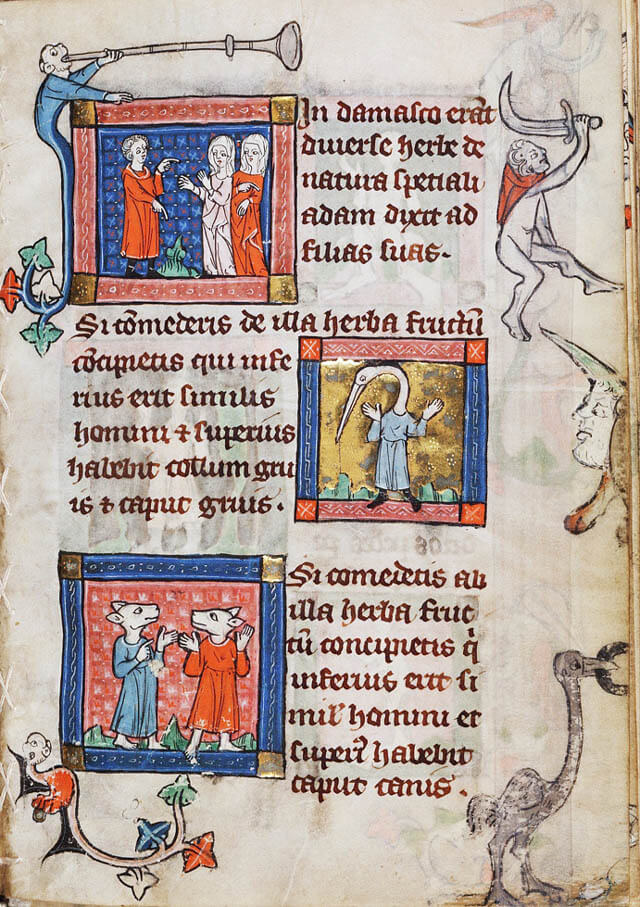 In damasco erāt
diuerse herbe de
natura spetiali
adam dixit ad
filias suas.
Si cōmederis de illa herba fructū
cōcipietis qui infe
rius erit similis
homini & superius
habebit collum gru
is & caput gruis.
Si comedetis ab
illa herba fruc
tū concipietis q̄
inferius erit si
mil' homini et
superi' habebit
caput canis.